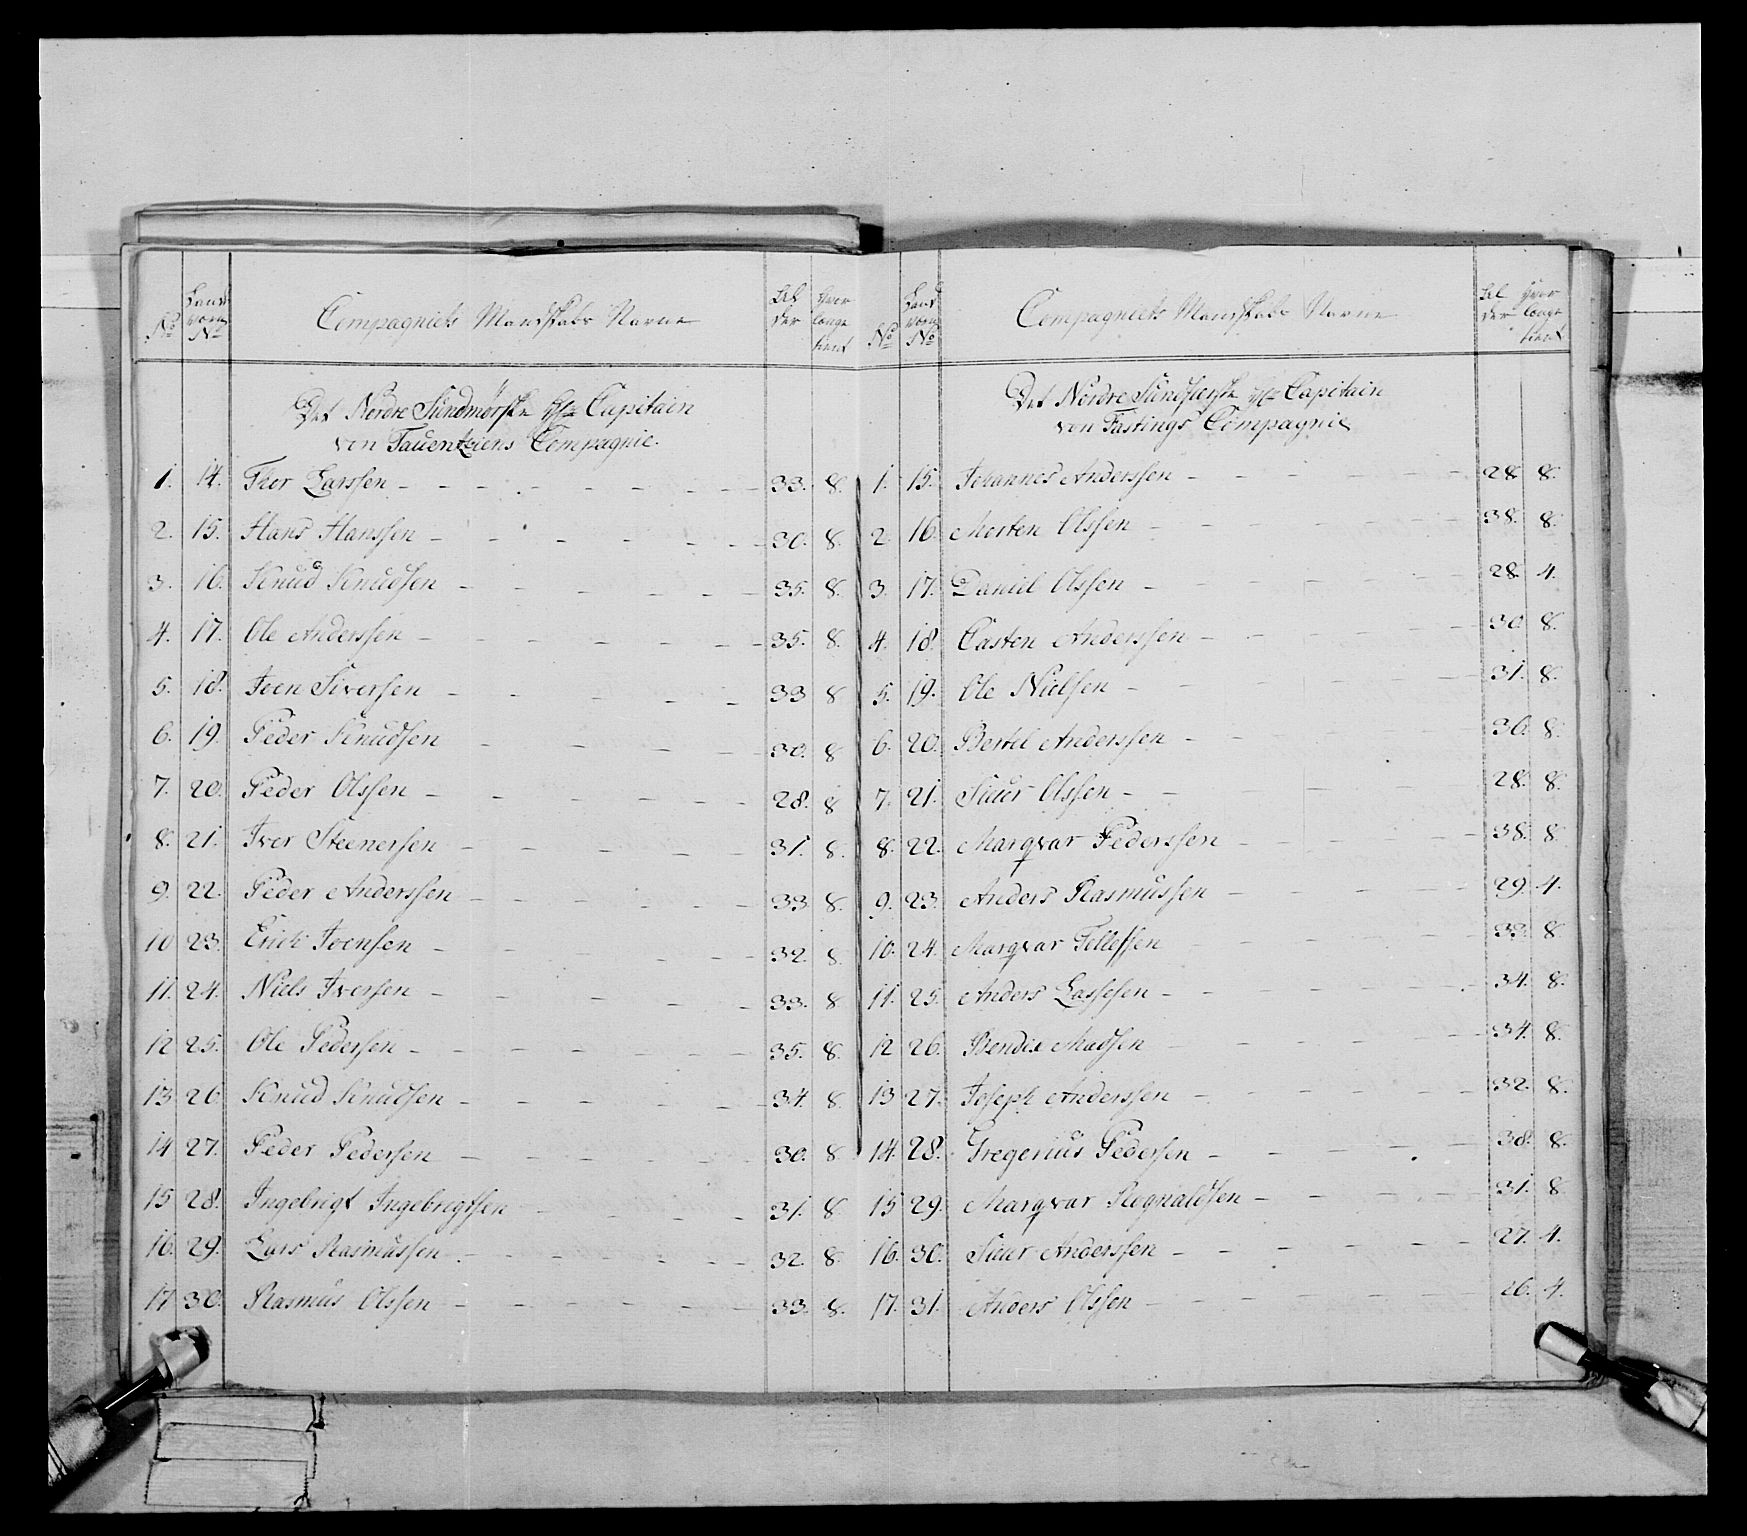 No
Land
værn
No
Compagniets Mandskabs Navne
Al
der
Hvor
længe
tient
Det Nordre Sundmørske Hr Capitain
von Tauentziens Compagnie.
1. 14. Thor Larssen 33. 8.
2. 15. Hans Hanssen 30. 8.
3. 16. Knud Knudsen 35. 8.
4. 17. Ole Anderssen 35. 8.
5. 18. Iven Siversen 33 8
6. 19. Peder Knudsen 30. 8
7. 20. Peder Olssen 28. 8
8. 21. Iver Steenersen 31. 8.
9. 22. Peder Anderssen 33. 8.
10 23. Erick Ivensen 32. 8.
11. 24. Niels Iversen 33. 8
12 25. Ole Pedersen 35. 8.
13 26. Knud Knudsen 34. 8.
14 27. Peder Pedersen 30. 8
15 28. Ingebrigt Ingebrigtsen 31. 8
16. 29. Lars Rasmussen 32. 8.
17 30. Rasmus Olssen 33. 8.
No
Land
værn
No
Compagniets Mandskabs Navne
Al
der
Hvor
længe
tient
Det Nordre Hr Capitain
von Fastings Compagnie
1. 15. Johannes Anderssen 28. 8.
2. 16. Morten Olssen 38. 8.
3. 17. Daniel Olssen 28. 4.
4. 18. Casten Anderssen 30. 8.
5. 19. Ole Nielsen 31. 8.
6. 20. Bertel Anderssen 36. 8.
7. 21. Siur Olssen 28. 8.
8. 22. Marqvar Pederssen 38. 8.
9. 23. Anders Rasmussen 29. 4.
10. 24. Marqvar Tellefsen 33. 8.
11. 25. Anders Lassesen 34. 8.
12 26. Bendix Madsen 34. 8.
13 27. Joseph Anderssen 32. 8.
14. 28. Gregerius Pedersen 38. 8.
15 29. Marqvar Rognaldsen 31. 8
16. 30. Siur Anderssen 27. 4.
17. 31. Anders Olssen 26. 4.